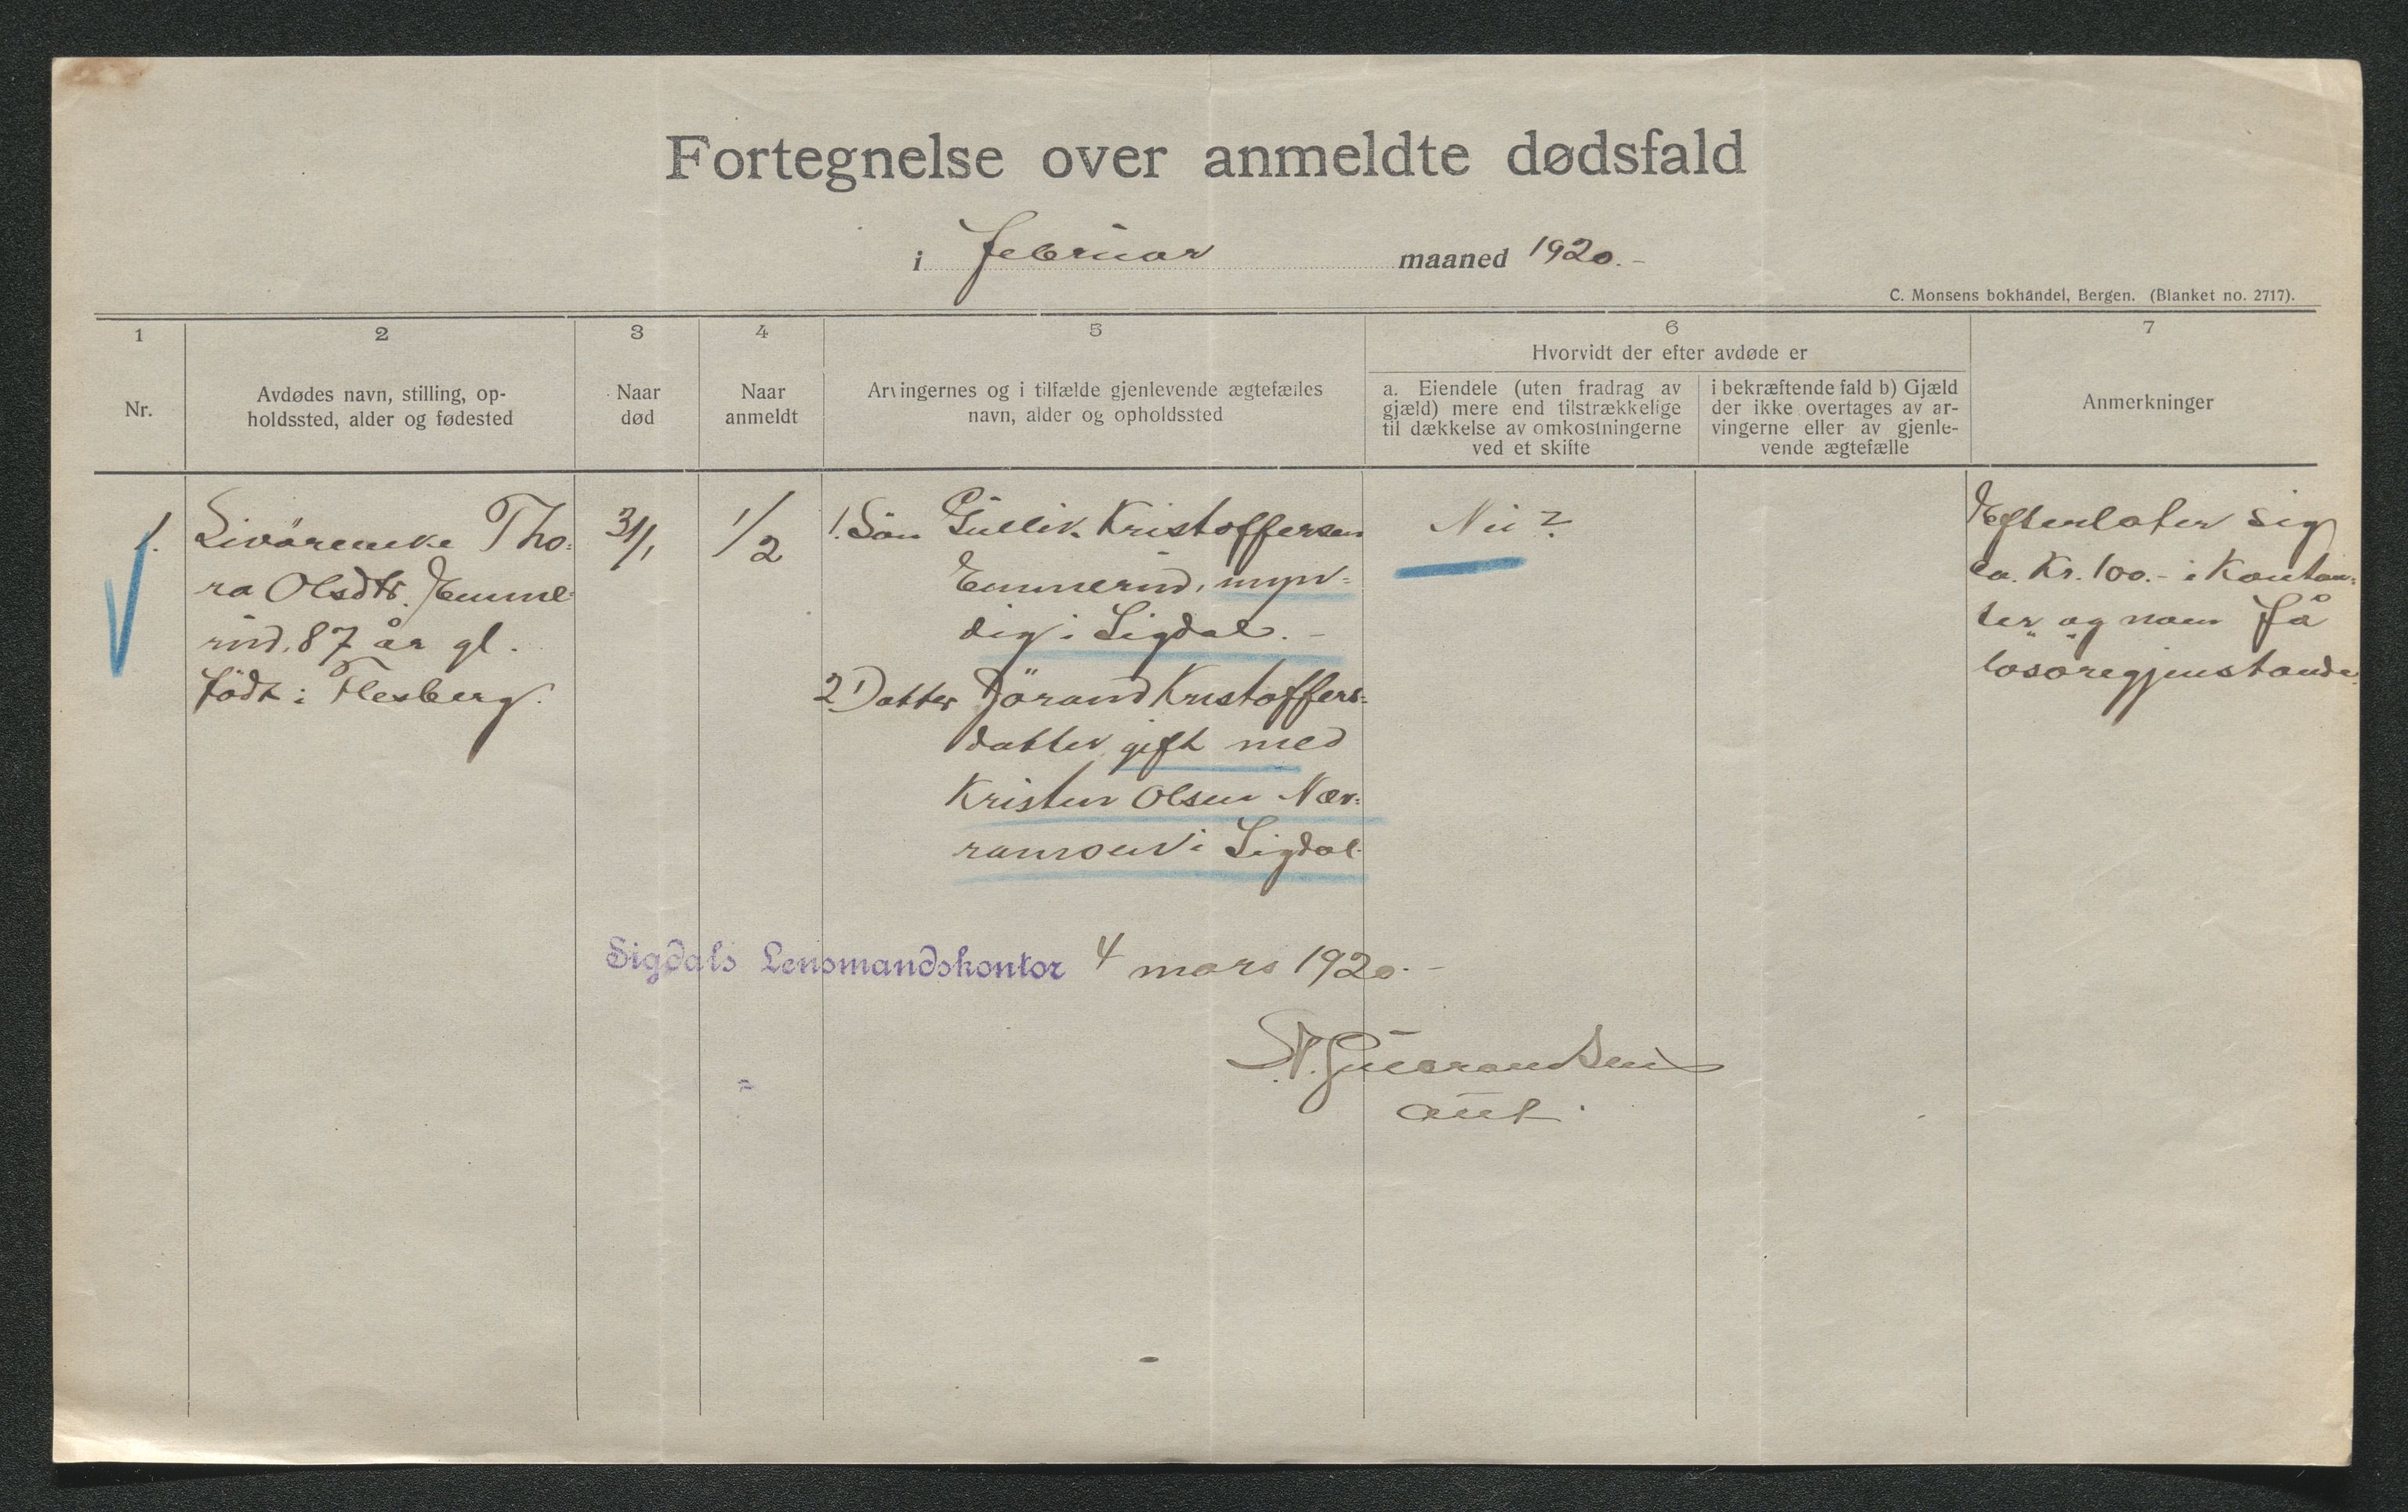 Fortegnelse over anmeldte dødsfald
i februar maaned 1920.-
C. Monsens bokhandel, Bergen. (Blanket no. 2717).
1
2
3
4
5
6
7
Nr.
Avdødes navn, stilling, op-
holdssted, alder og fødested
Naar
død
Naar
anmeldt
Arvingernes og i tilfælde gjenlevende ægtefælles
navn, alder og opholdssted
Hvorvidt der efter avdøde er
a. Eiendele (uten fradrag av
gjæld) mere end tilstrækkelige
til dækkelse av omkostningerne
ved et skifte
i bekræftende fald b) Gjæld
der ikke overtages av ar-
vingerne eller av gjenle-
vende ægtefælle
Anmerkninger
1.
Livörenke Tho-
ra Olsdtr. Emme-
rud, 87 år gl.
født i Flesberg.
31/1
1/2
1. Søn Gullik Kristoffersen
Emmerud, myn-
dig i Sigdal. -
2. Datter Jörand Kristoffers-
datter gift med
Kristen Olsen Nær-
i Sigdal.
Nei
Efterlater sig
ca. Kr. 100.- i Kontan-
ter og noen få
løsøregjenstande.
Sigdals Lensmandskontor 4 mars 1920.-
Gulbrandsen
aut.